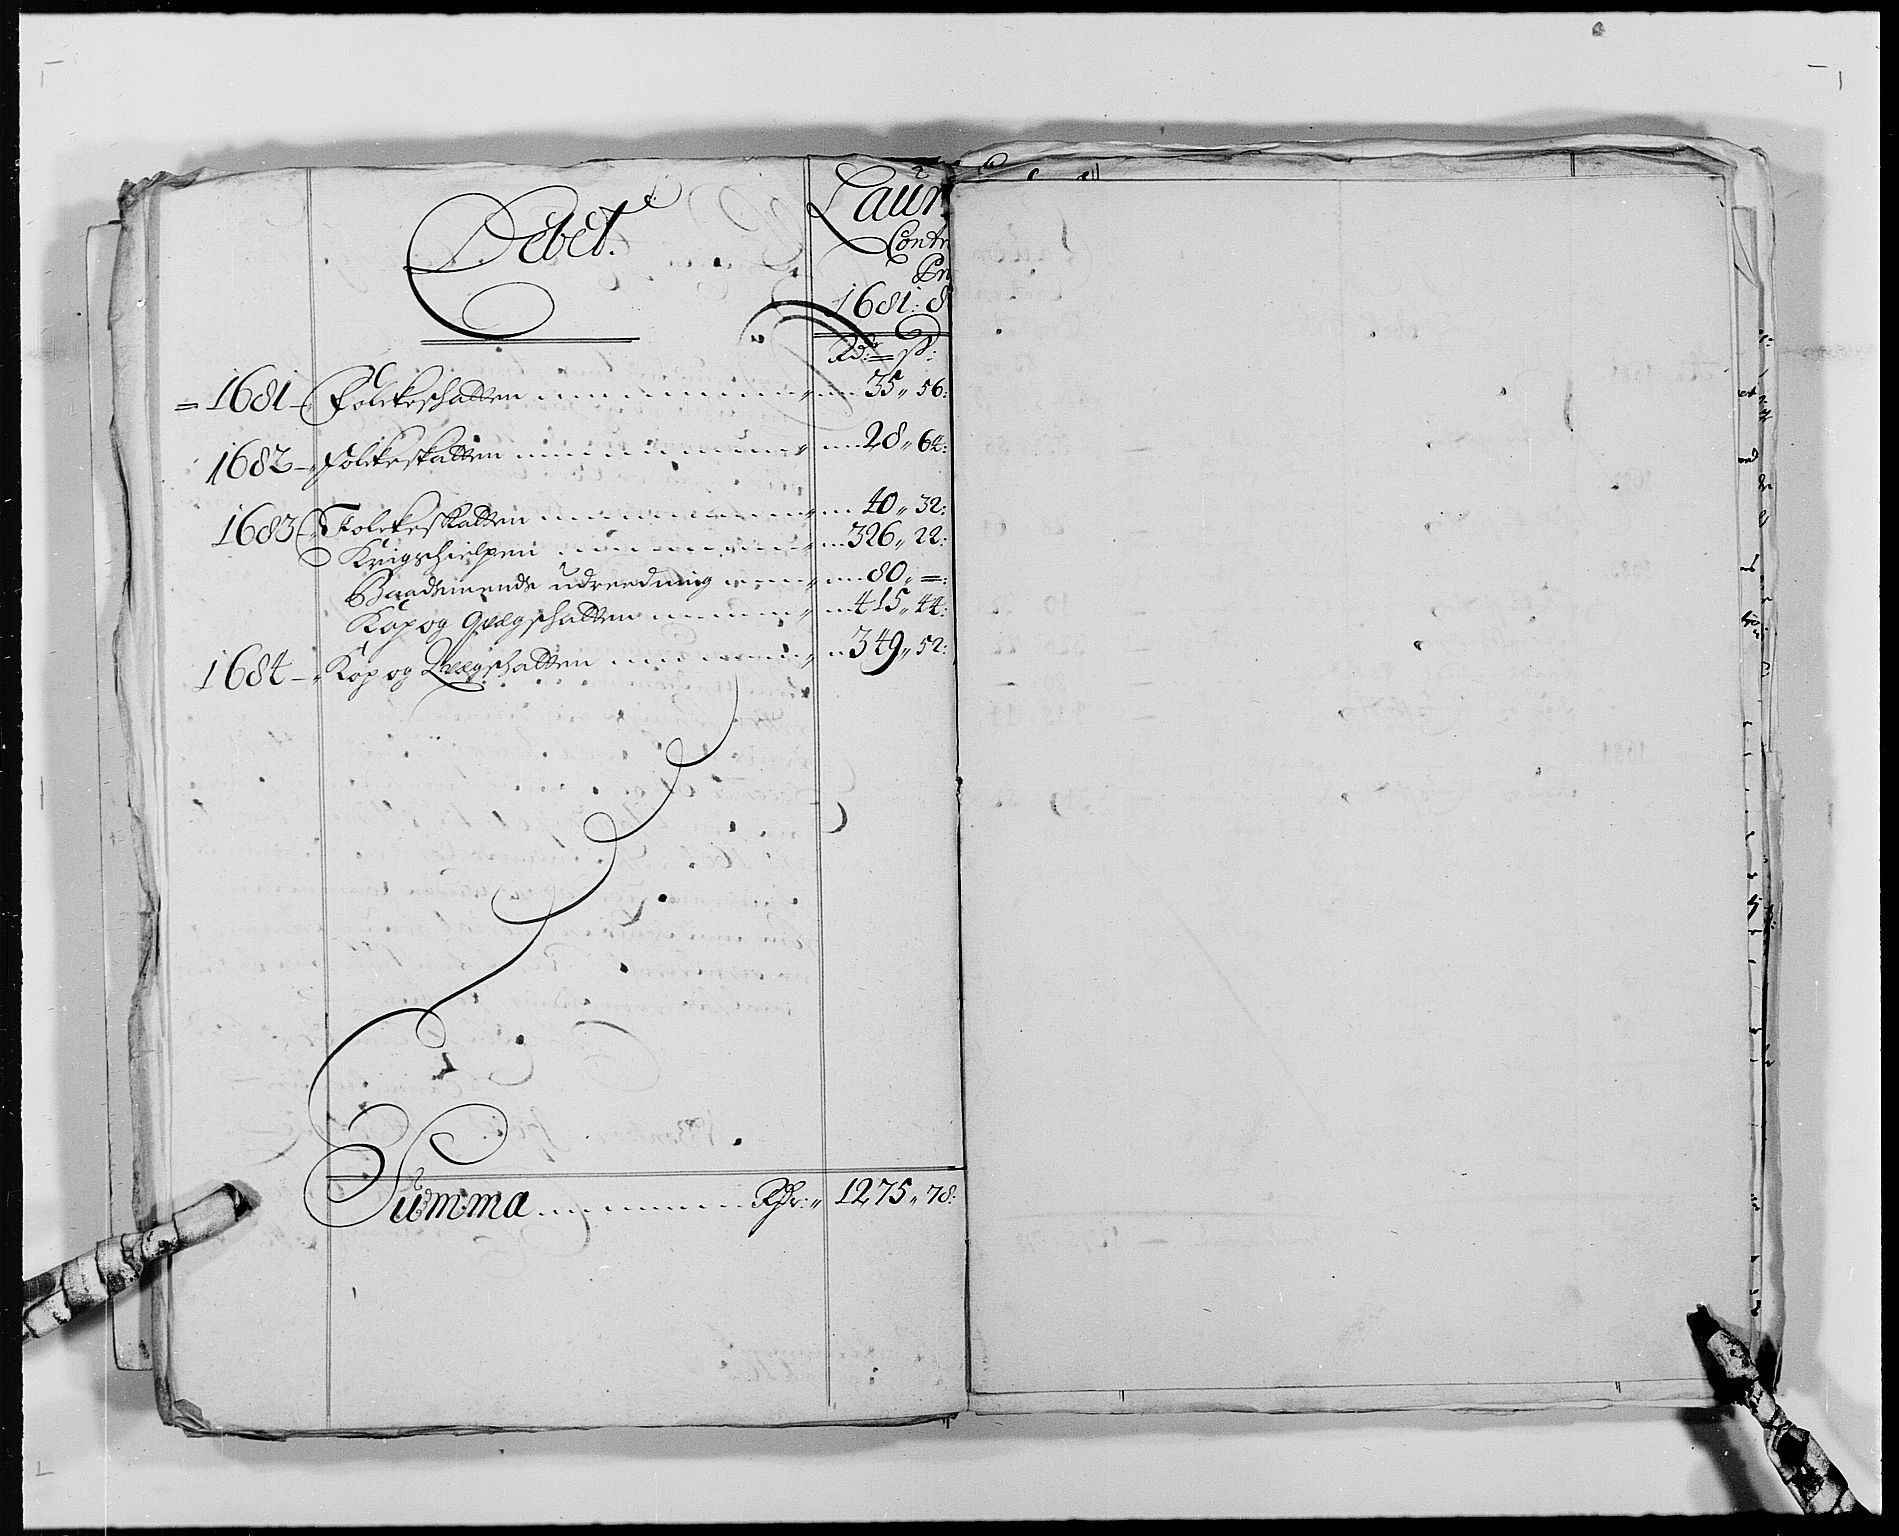 Debet.
Laur
Contr
1681: 8
Rdr = ß:
1681 Folckeschatten 35 56:
1682 Folckeskatten 28 64:
1683 Folckeskatten 40 32:
Krigschielpen 326 22:
Baadsmends udreedning 80 =:
Kop og Qvægschatten 415 44:
1684 Kop og Qvægschatten 349 52:
Summa Rdr: 1275 78: